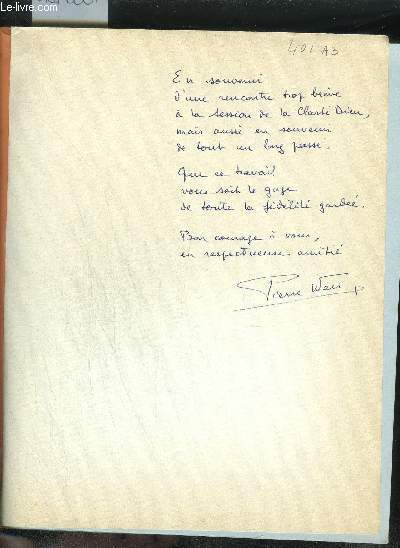 Le-livre.com
401 A3
En souvenir
d'une rencontre trop brève
à la session de la Clarté Dieu,
mais aussi en souvenir
de tout un long passé.
Que ce travail
vous soit le gage
de toute la fidélité gardée.
Bon courage à vous,
en respectueuse amitié
Pierre